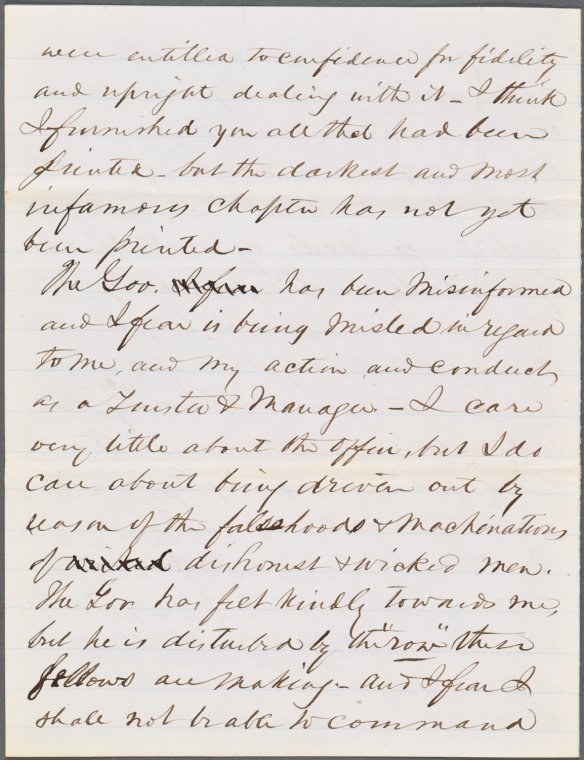 were entitled to confidence for fidelity
and upright dealing with it - I think
I furnished you all that had been
printed - but the darkest and most
infamous chapter has not yet
been printed -
The Gov. has been misinformed
and I fear is being misled in regard
to me, and my action and conduct
as a Trustee & Manager. - I care
very little about the office, but I do
care about being driven out by
reason of the falsehoods & machinations
of dishonest & wicked men.
The Gov has felt kindly towards me,
but he is disturbed by the "row" these
fellows are making - and I fear I
shall not be able to command